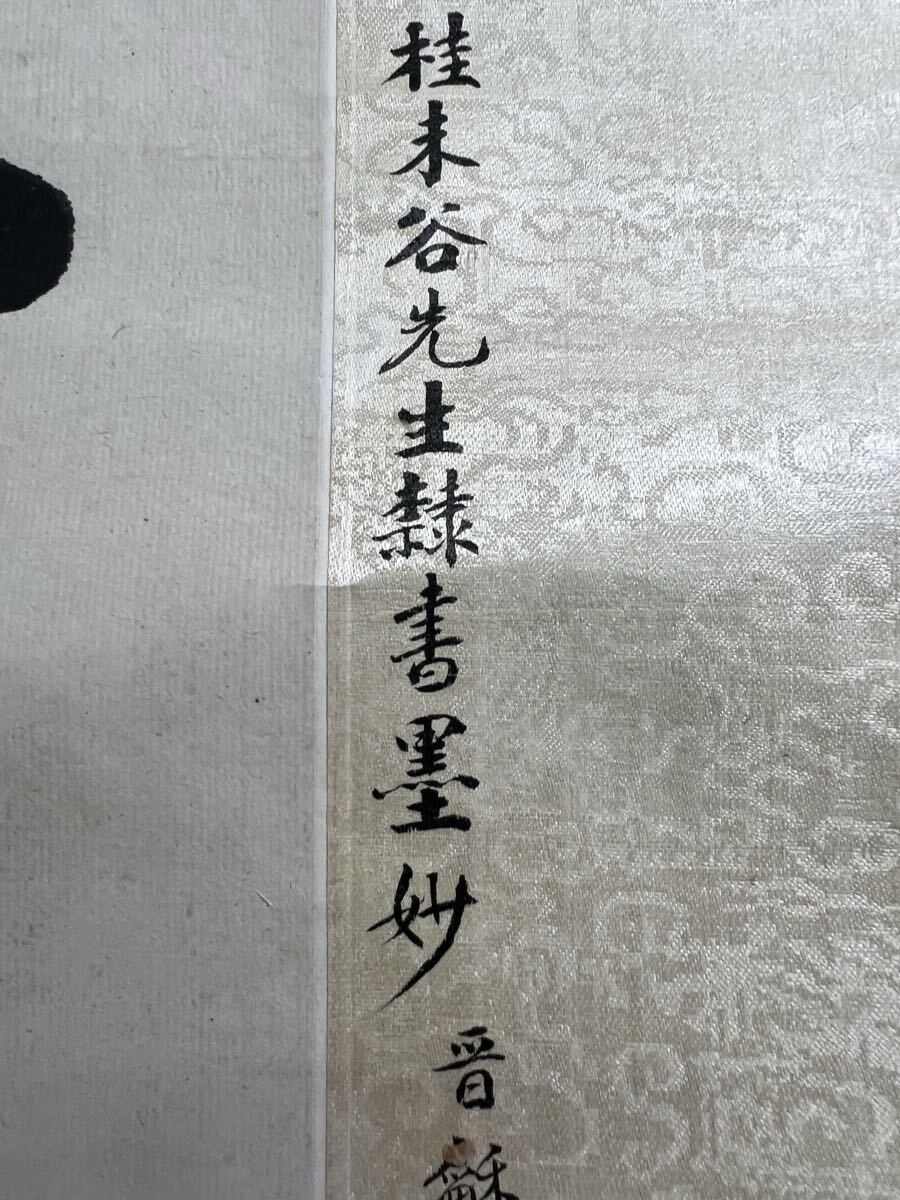 桂未谷先生隸書墨妙 晉龢